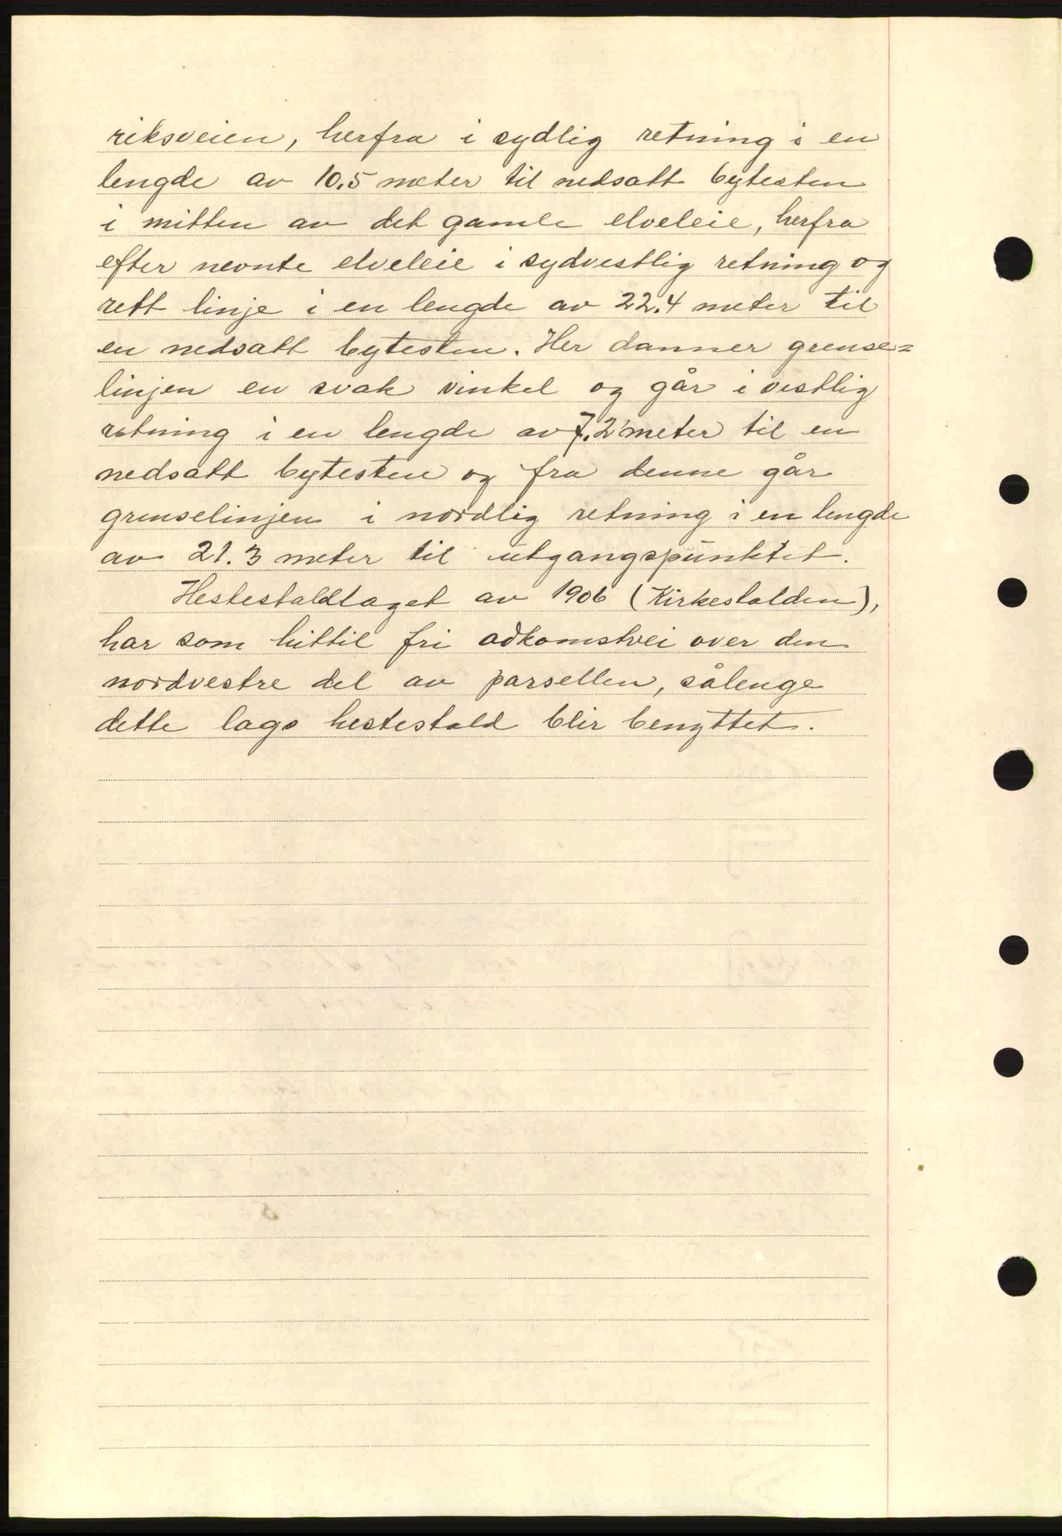 riksveien, herfra i sydlig retning i en
lengde av 10.5 meter til nedsatt bytesten
i mitten av det gamle elveleie, herfra
efter nevnte elveleie i sydvestlig retning og
rett linje i en lengde av 22.4 meter til
en nedsatt bytesten. Her danner grense=
linjen en svak vinkel og går i vestlig
retning i en lengde av 7.2 meter til en
nedsatt bytesten og fra denne går
grenselinjen i nordlig retning i en lengde
av 21.3 meter til utgangspunktet.
Hestestaldlaget av 1906 (Kirkestalden),
har som hittil fri adkomstvei over den
nordvestre del av parsellen, sålenge
dette lags hestestald blir benyttet.